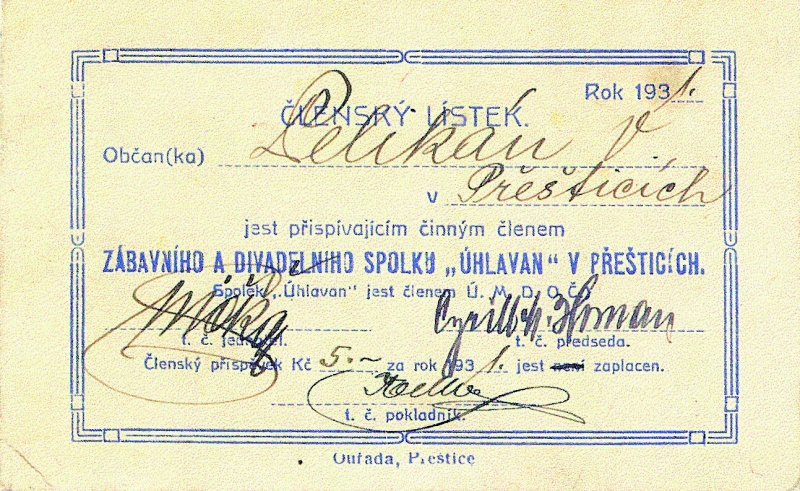 Rok 1931.
ČLENSKÝ LÍSTEK.
Občan(ka) Pelikán V.
v Přešticích
jest přispívajícím činným členem
ZÁBAVNÍHO A DIVADELNIHO SPOLKU „ÚHLAVAN" V PŘEŠTICÍCH.
Spolek „Úhlavan" jest členem Ú. M. D. O. Č.
t. č. jednatel. t. č. předseda.
Členský příspěvek Kč 5.– za rok 1931. jest není zaplacen.
t. č. pokladník.
Ouřada, Přeštice